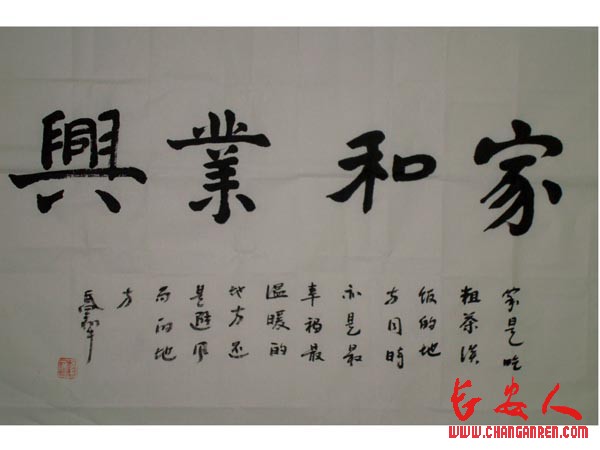 家和業興
家是吃
粗茶淡
饭的地
方同時
亦是最
幸福最
温暖的
地方还
是避风
雨的地
方
长安人
WWW.CHANGANREN.COM